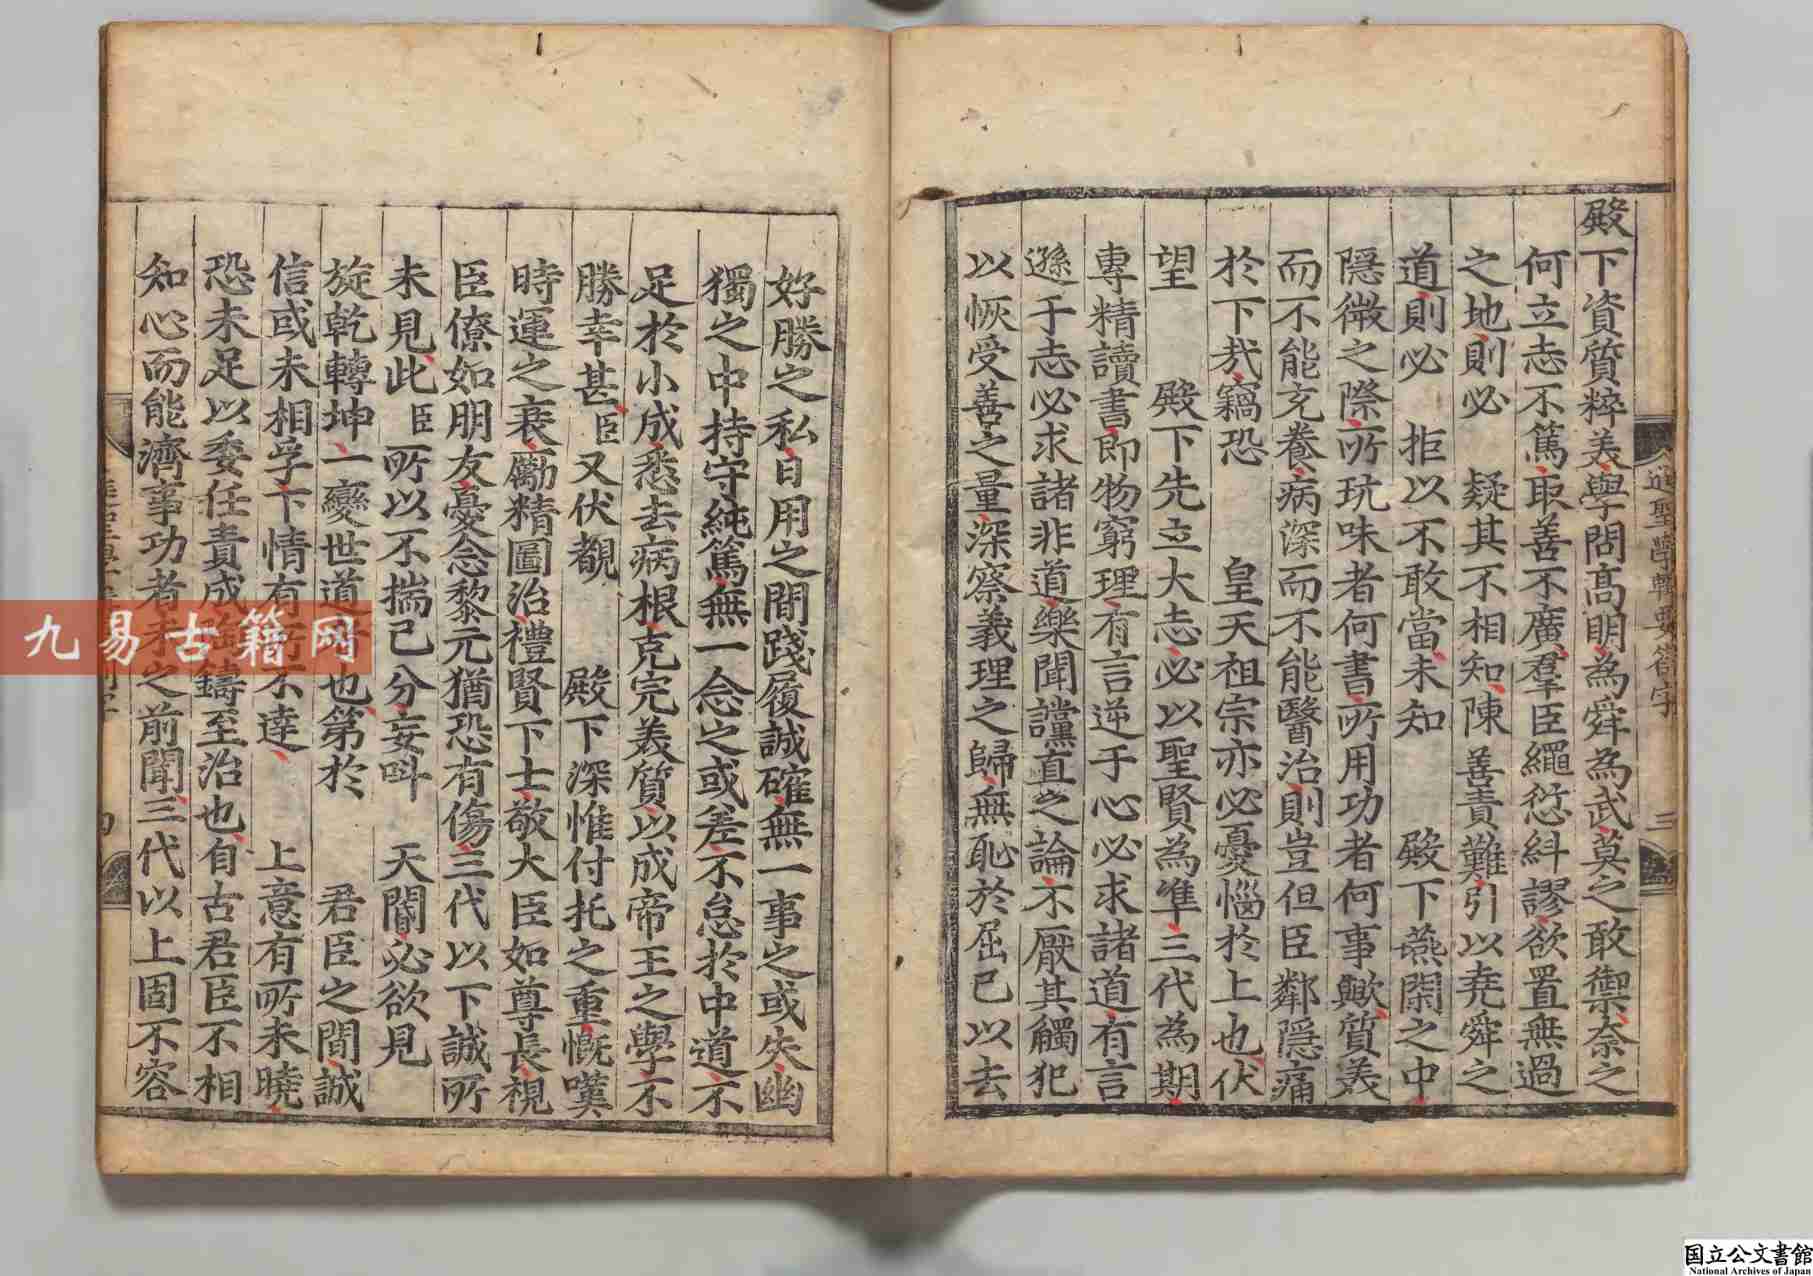 殿下資質粹美學問高明為舜為武莫之敢禦奈之
何立志不篤取善不廣羣臣繩愆糾謬欲置無過
之地則必 疑其不相知陳善責難引以堯舜之
道則必 拒以不敢當未知 殿下燕閑之中
隱微之際所玩味者何書所用功者何事歟質美
而不能充養病深而不能醫治則豈但臣鄰隱痛
於下㢤竊恐 皇天祖宗亦必憂惱於上也伏
望 殿下先立大志必以聖賢為準三代為期
專精讀書即物窮理有言逆于心必求諸道有言
遜于志必求諸非道樂聞讜直之論不厭其觸犯
以恢受善之量深察義理之歸無恥於屈己以去
進聖學輯要箚字
三
好勝之私日用之間踐履誠確無一事之或失幽
獨之中持守純篤無一念之或差不怠於中道不
足於小成悉去病根克完美質以成帝王之學不
勝幸甚臣又伏覩 殿下深惟付托之重慨嘆
時運之衰勵精圖治禮賢下士敬大臣如尊長視
臣僚如朋友憂念黎元猶恐有傷三代以下誠所
未見此臣所以不揣己分妄叫 天閽必欲見
旋乾轉坤一變世道也第於 君臣之間誠
信或未相孚下情有不達 上意有所未曉
恐未足以委任責成陶鑄至治也自古君臣不相
知心而能濟事功者未之前聞三代以上固不容
九易古籍网
国立公文書館
National Archives of Japan